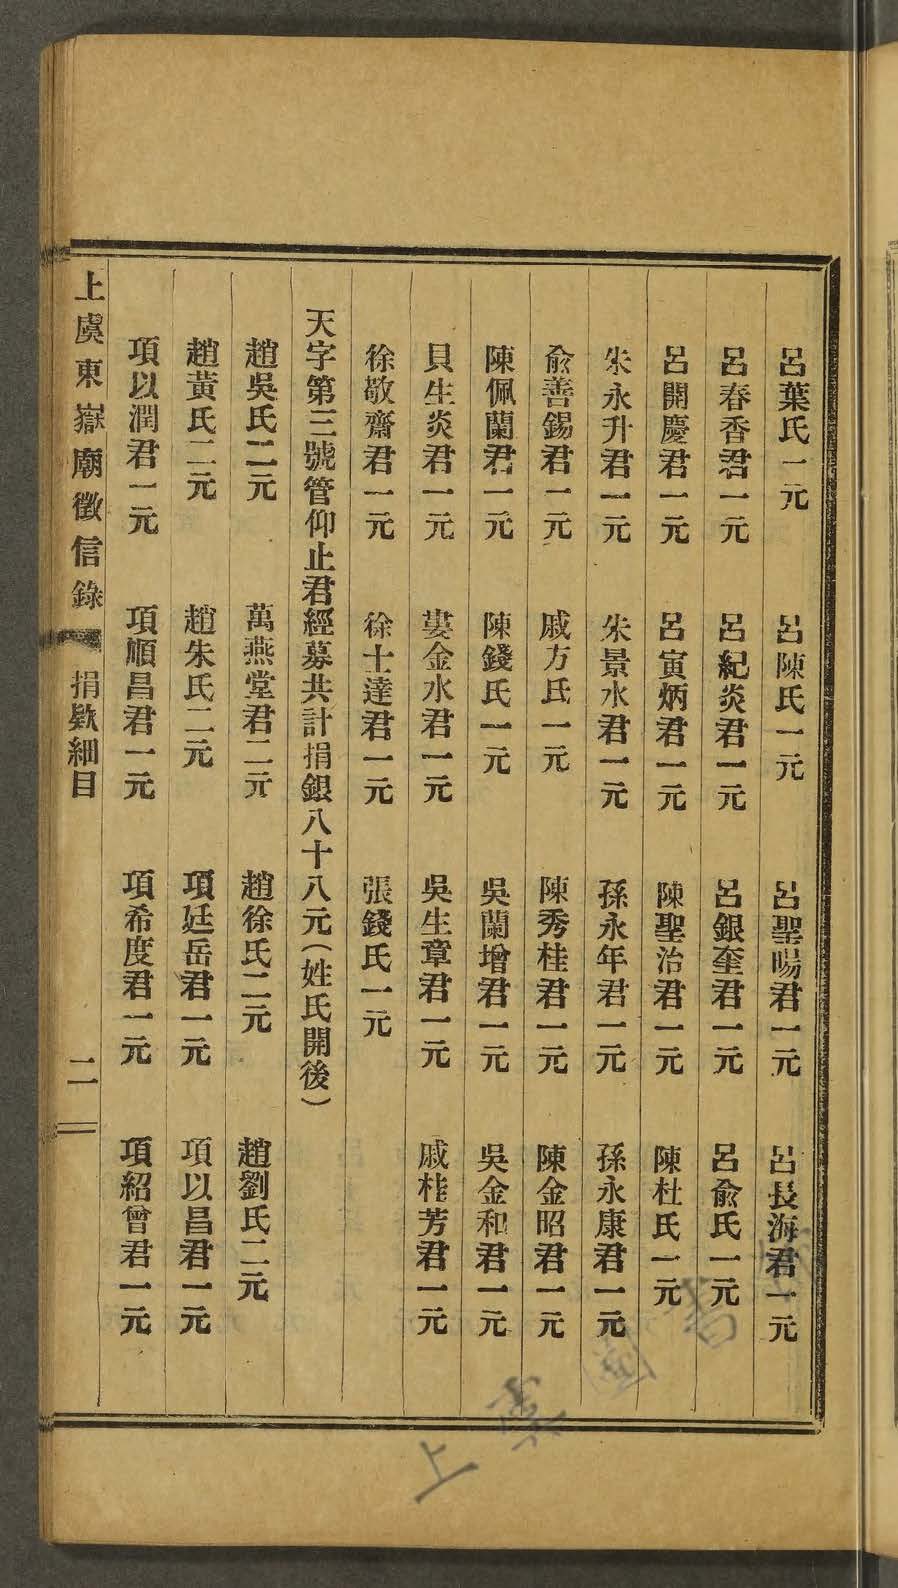 呂葉氏一元 呂陳氏一元 呂聖暘君一元 呂長海君一元
呂春香君一元 呂紀炎君一元 呂銀奎君一元 呂俞氏一元
呂開慶君一元 呂寅炳君一元 陳聖治君一元 陳杜氏一元
朱永升君一元 朱景水君一元 孫永年君一元 孫永康君一元
俞善錫君一元 戚方氏一元 陳秀桂君一元 陳金昭君一元
陳佩蘭君一元 陳錢氏一元 吳蘭增君一元 吳金和君一元
貝生炎君一元 婁金水君一元 吳生章君一元 戚桂芳君一元
徐敬齋君一元 徐士達君一元 張錢氏一元
天字第三號管仰止君經募共計捐銀八十八元（姓氏開後）
趙吳氏二元 萬燕堂君二元 趙徐氏二元 趙劉氏二元
趙黃氏二元 趙朱氏二元 項廷岳君一元 項以昌君一元
項以潤君一元 項順昌君一元 項希度君一元 項紹曾君一元
上虞東嶽廟徵信錄 捐欵細目 二一
上虞圖書